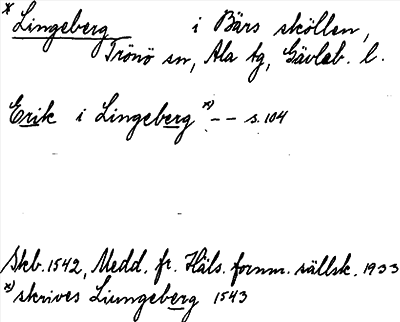 * Lingeberg i Bärs sköllen,
Trönö sn, Ala tg, Gävleb. l.
Erik i Lingeberg *) -- s. 104
Skb. 1542, Medd. fr. Häls. fornm. sällsk. 1933
*) skrives Liungeberg 1543